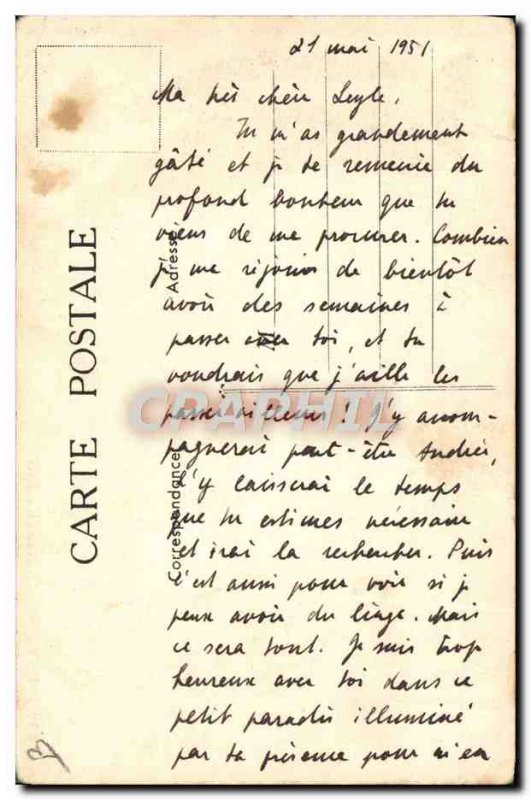 21 mai 1951
Ma très chère Leyle,
Tu m'as grandement
gâté et je te remercie du
profond bonheur que tu
viens de me procurer. Combien
je me réjouis de bientôt
avoir des semaines à
passer avec toi, et tu
voudrais que j'aille les
passer ailleurs! J'y accom-
pagnerai peut-être Andrée,
l'y laisserai le temps
que tu estimes nécessaire
et irai la rechercher. Puis
c'est aussi pour voir si je
peux avoir du linge. Mais
ce sera tout. Je suis trop
heureux avec toi dans ce
petit paradis illuminé
par ta présence pour m'en
CARTE POSTALE
Adresse
Correspondance
CRAPHIL